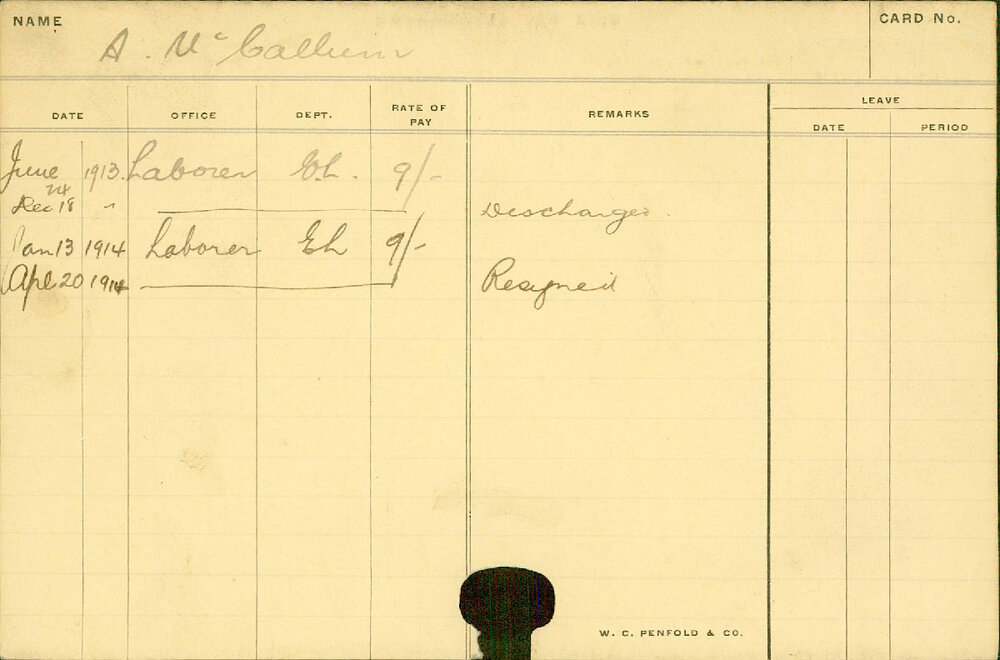 NAME A. McCallum CARD No.
DATE OFFICE DEPT. RATE OF PAY REMARKS LEAVE
DATE PERIOD
June 24 1913. Laborer E.L. 9/-
Dec 18 " Discharged.
Jan 13 1914 Laborer EL 9/-
Apl. 20 1914 Resigned
W. C. PENFOLD & CO.